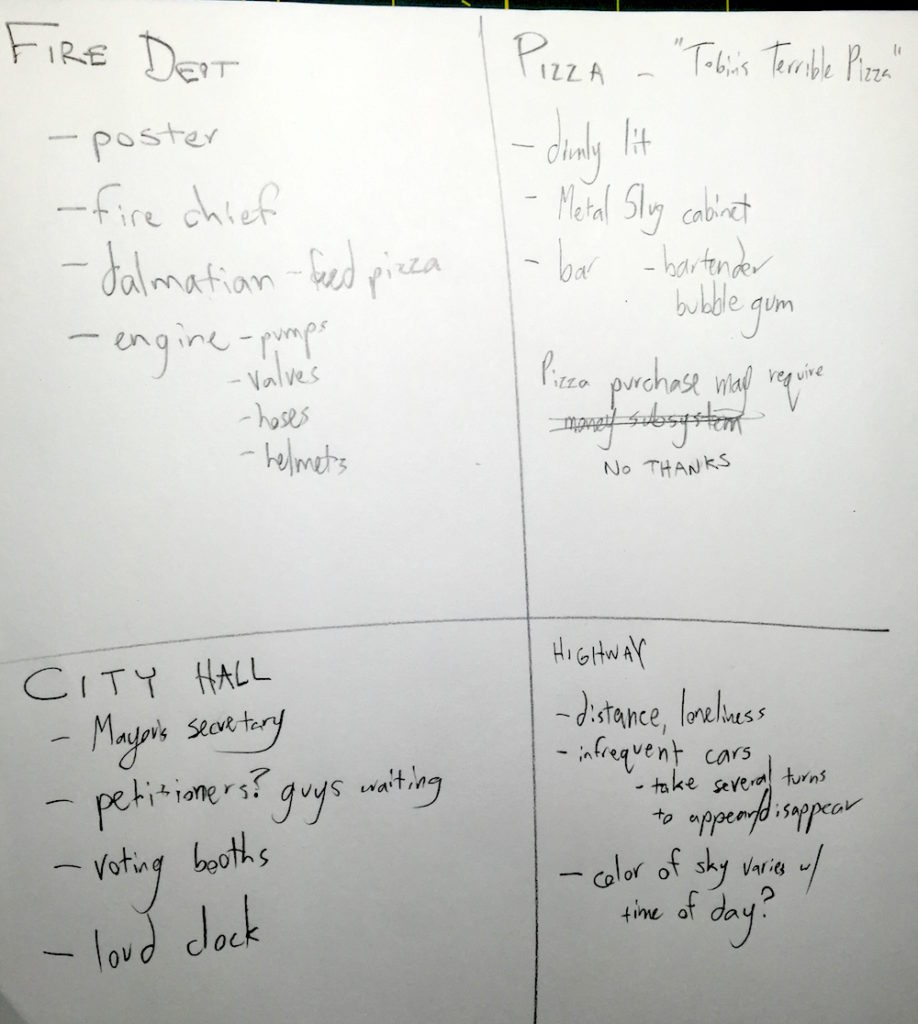 FIRE DEPT
- poster
- fire chief
- dalmatian - feed pizza
- engine - pumps
- valves
- hoses
- helmets
PIZZA - "Tobin's Terrible Pizza"
- dimly lit
- Metal Slug cabinet
- bar - bartender
bubble gum
Pizza purchase may require
money subsystem
NO THANKS
CITY HALL
- Mayor's secretary
- petitioners? guys waiting
- voting booths
- loud clock
HIGHWAY
- distance, loneliness
- infrequent cars
- take several turns
to appear/disappear
- color of sky varies w/
time of day?